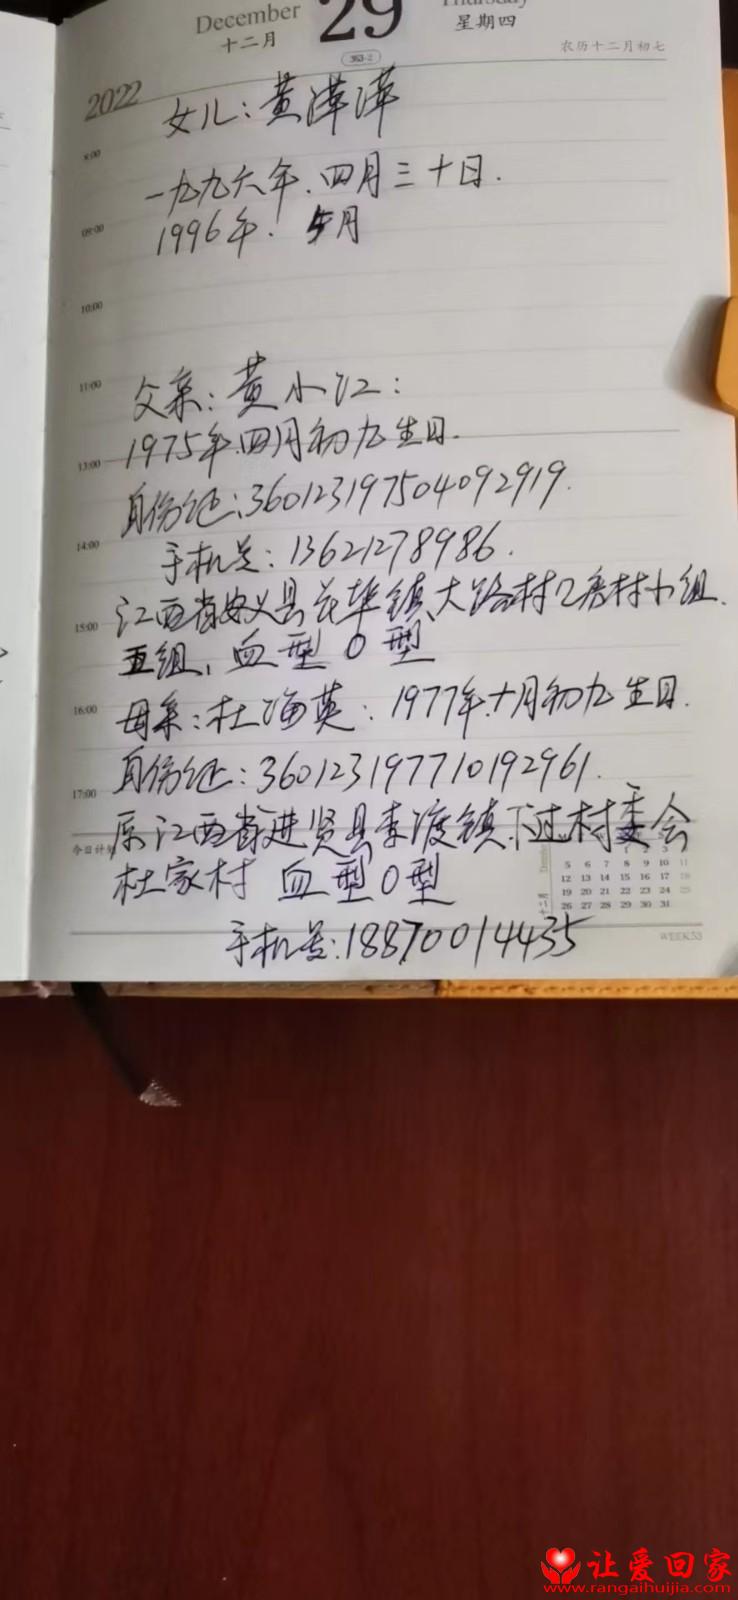 December 29 Thursday
十二月 星期四
363-2 农历十二月初七
2022
女儿：黄萍萍
8:00
一九九六年.四月三十日.
09:00
1996年. 5月
10:00
11:00
父亲：黄小江：
1975年.四月初九生日.
13:00
身份证：360123197504092919.
14:00
手机号：13621278986.
江西省安义县 镇、大路村 村小组.
15:00
五组，血型O型
16:00
母亲：杜海英：1977年.十月初九生日.
身份证：360123197710192961.
17:00
原江西省进贤县李渡镇下过村委会
今日计
杜家村 血型O型
December 十二月
1 2 3 4
5 6 7 8 9 10 11
12 13 14 15 16 17 18
19 20 21 22 23 24 25
26 27 28 29 30 31
手机号：18870014435
WEEK53
让爱回家
www.rangaihuijia.com